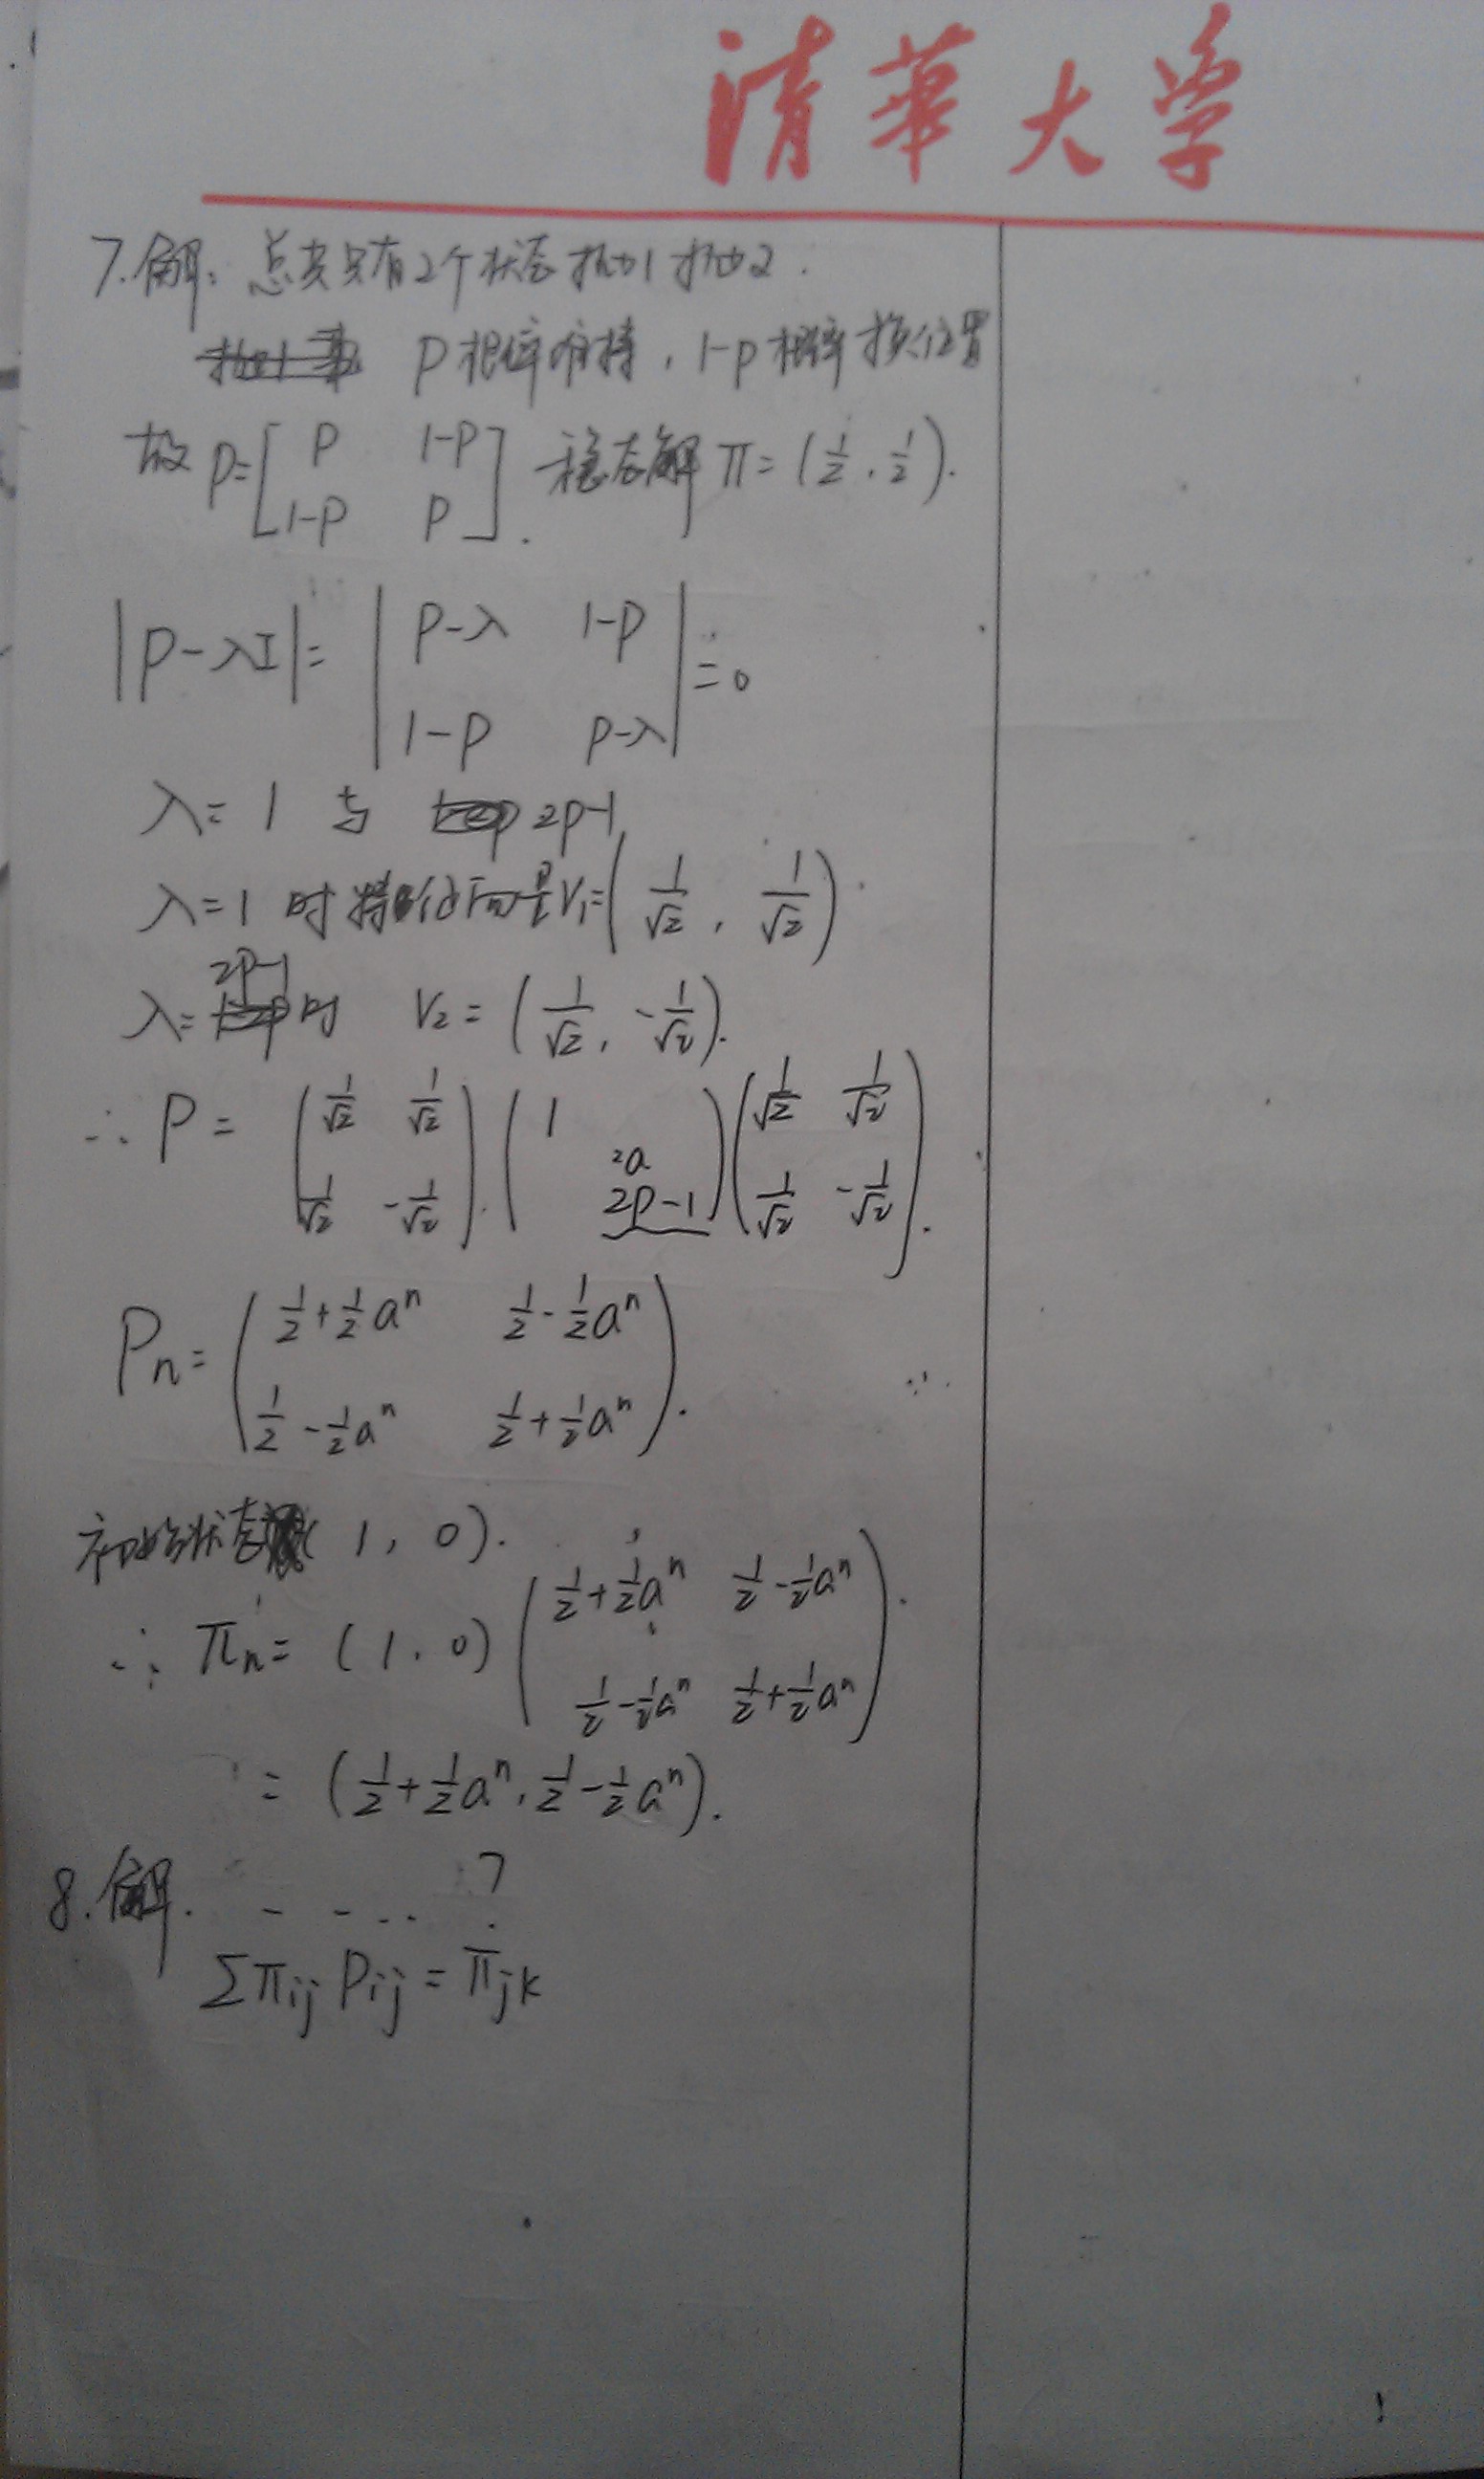 清華大学
7.解: 总共只有2个状态 1 2.
P概率维持, 1-P概率换位置
故 P=[P 1-P
1-P P]. 稳态解 π=(1/2, 1/2).
|P-λI|= |P-λ 1-P
1-P P-λ| =0
λ=1 与 2P-1
λ=1 时特征向量V₁=(1/√2, 1/√2).
λ=2P-1时 V₂=(1/√2, -1/√2).
∴ P= (1/√2 1/√2
1/√2 -1/√2).(1
2a
2P-1)(1/√2 1/√2
1/√2 -1/√2).
Pn= (1/2+1/2aⁿ 1/2-1/2aⁿ
1/2-1/2aⁿ 1/2+1/2aⁿ).
初始状态(1, 0).
∴ πn= (1, 0)(1/2+1/2aⁿ 1/2-1/2aⁿ
1/2-1/2aⁿ 1/2+1/2aⁿ).
= (1/2+1/2aⁿ, 1/2-1/2aⁿ).
8.解. - - .. ?
Σπij Pij = πjk